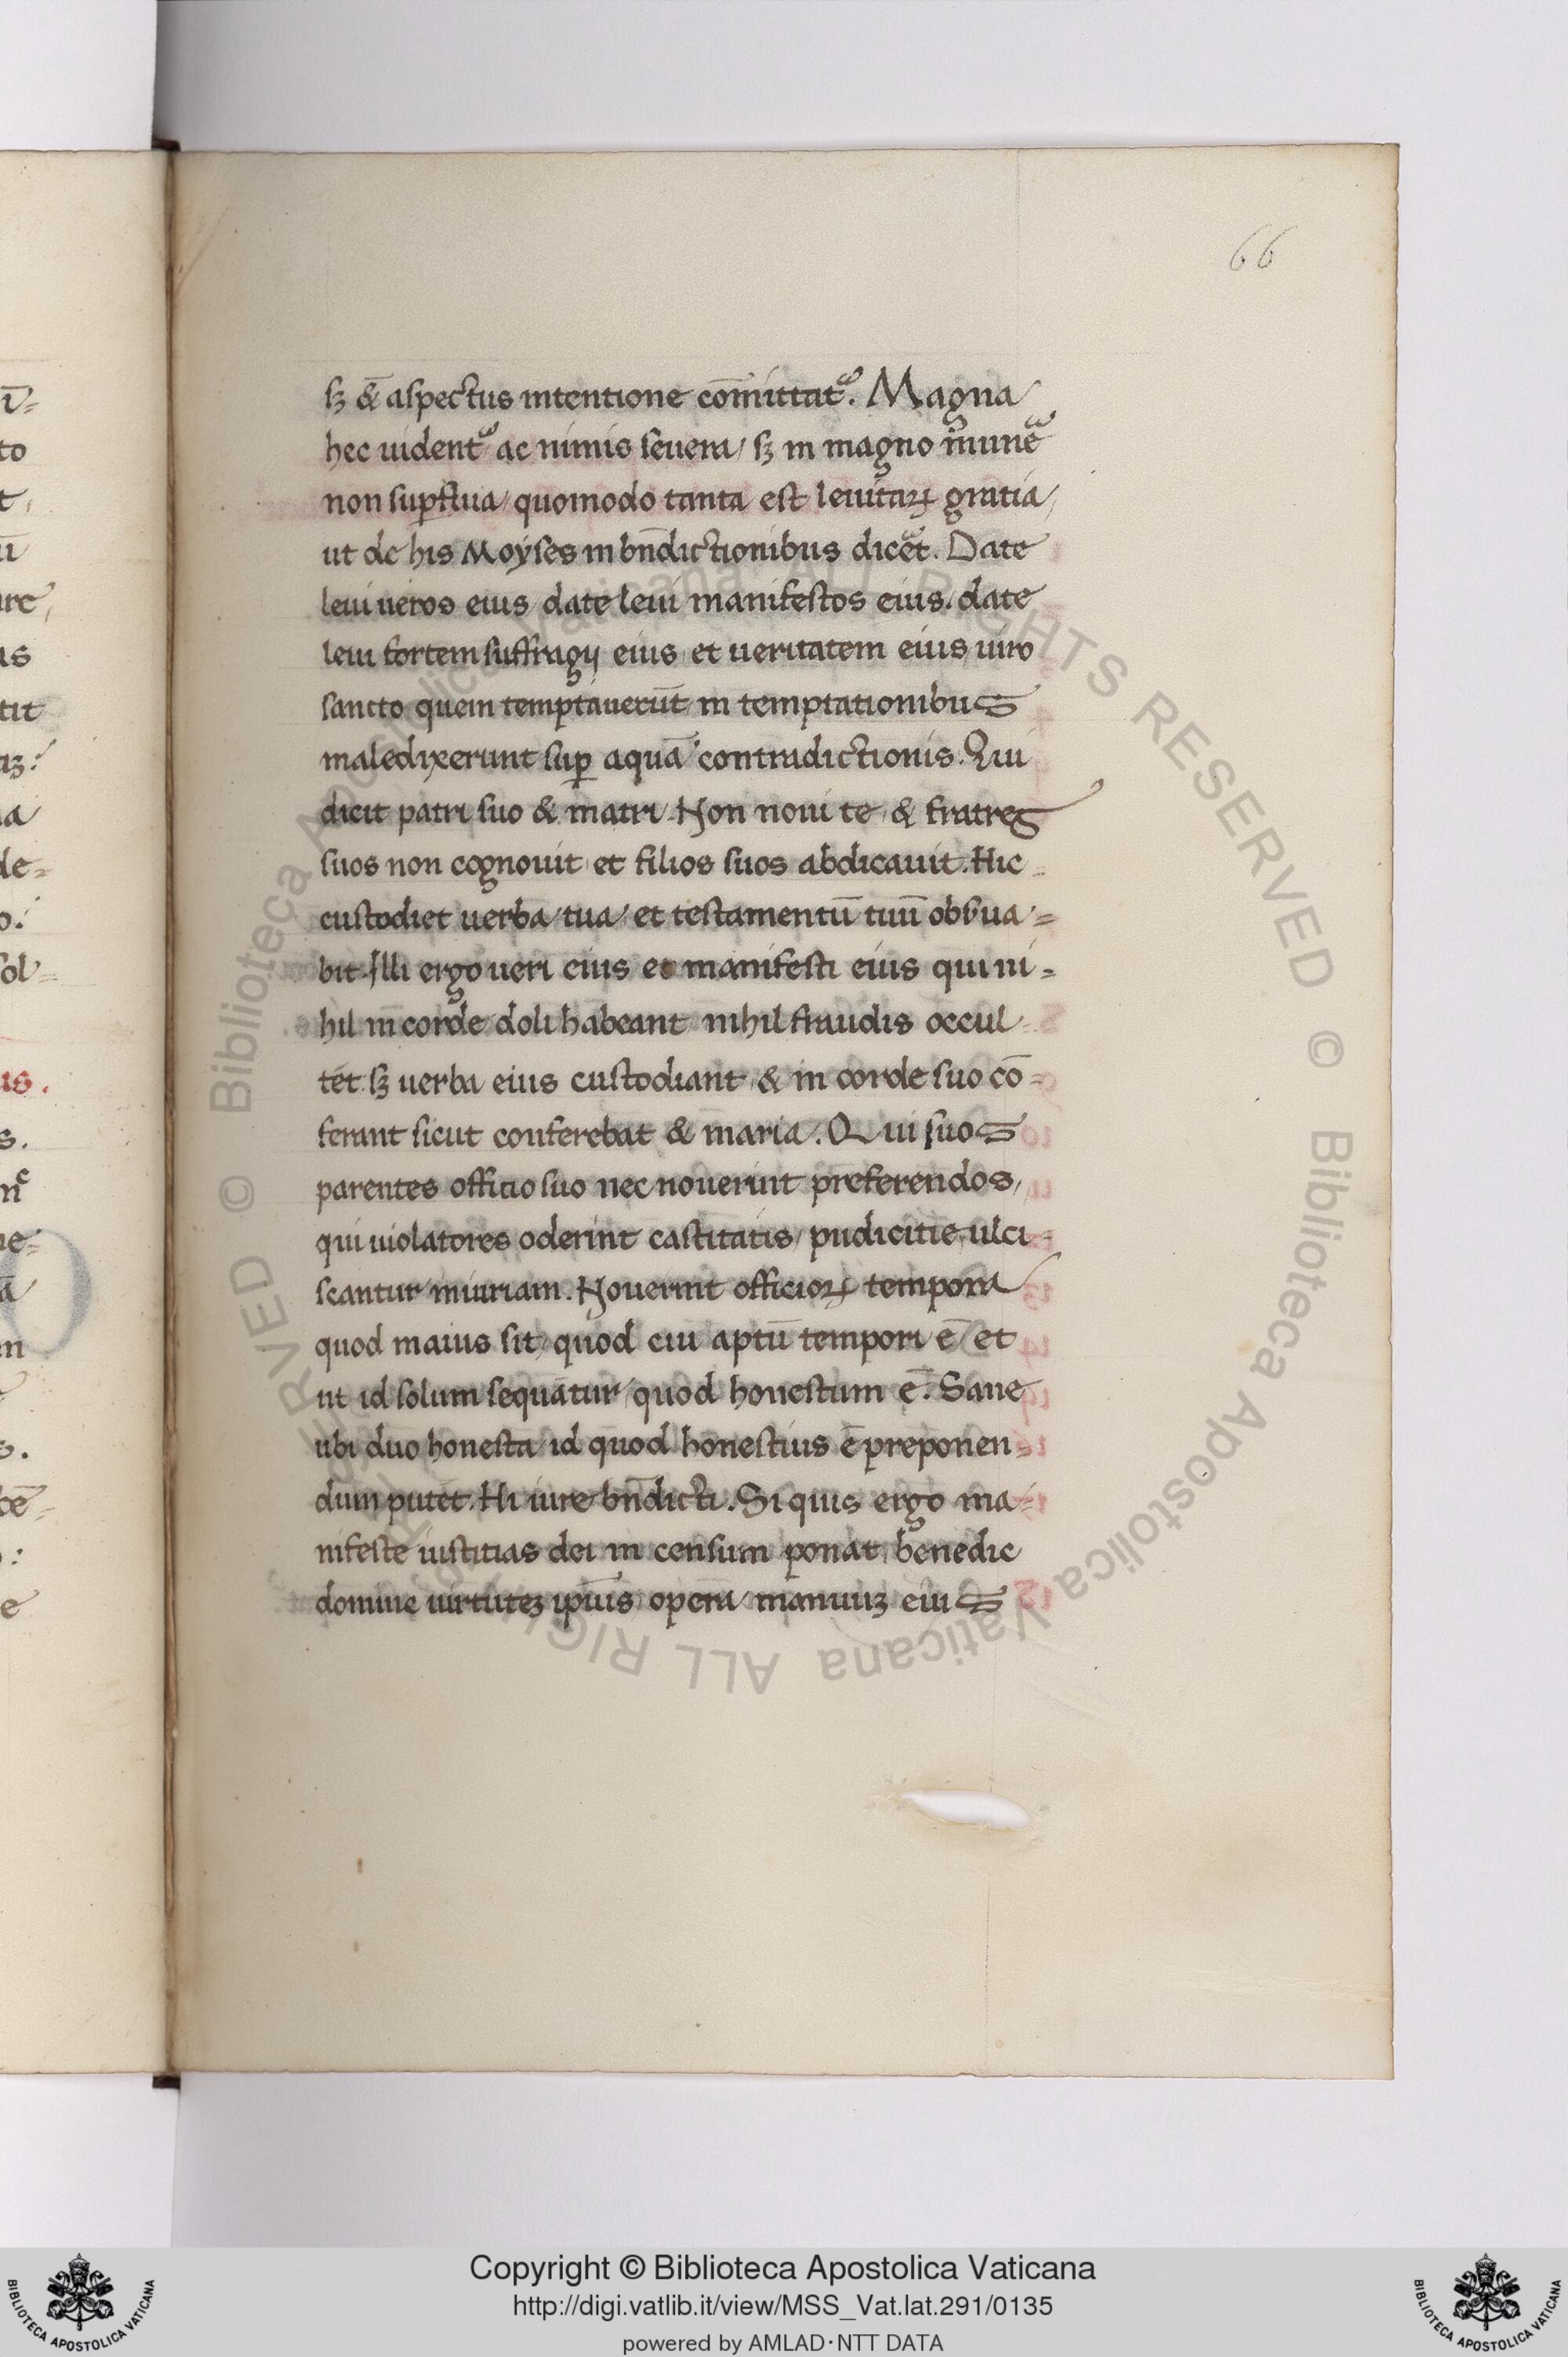 66
sꝫ & aspectus intentione cōmittat᷑. Magna
hec uident᷑ ac nimis seuera / sꝫ in magno mune᷑
non suꝑflua / quomodo tanta est leuitaꝝ gratia /
ut de his Moyses in bn̄dictionibus dicet. Date
leui ueros eius / date leui manifestos eius / date
leui sortem suffragij eius / et ueritatem eius uiro
sancto quem temptauerūt in temptationibus
maledixerunt suꝑ aquā contradictionis. Qui
dicit patri suo & matri. Non noui te / & fratres
suos non cognouit et filios suos abdicauit. Hic -
custodiet uerba tua / et testamentū tuū obẜua =
bit. Illi ergo ueri eius et manifesti eius qui ni =
hil in corde doli habeant nihil fraudis occul -
tet sꝫ uerba eius custodiant & in corde suo cō -
ferant sicut conferebat & maria. Qui suos
parentes officio suo nec nouerint preferendos /
qui uiolatores oderint castitatis / pudicitie ulci -
scantur iniuriam. Nouerint officioꝝ tempora
quod maius sit / quod cui aptū tempori ē / et
ut id solum sequātur / quod honestum ē. Sane
ubi duo honesta / id quod honestius ē preponen -
dum putet. Hi iure bn̄dicti. Si quis ergo ma -
nifeste iustitias dei in censum ponat / benedic
domine uirtuteꝫ ipīus / opera manuuꝫ eius
© Biblioteca Apostolica Vaticana ALL RIGHTS RESERVED
© Biblioteca Apostolica Vaticana ALL RIGHTS RESERVED
Copyright © Biblioteca Apostolica Vaticana
http://digi.vatlib.it/view/MSS_Vat.lat.291/0135
powered by AMLAD·NTT DATA
BIBLIOTECA APOSTOLICA VATICANA
BIBLIOTECA APOSTOLICA VATICANA